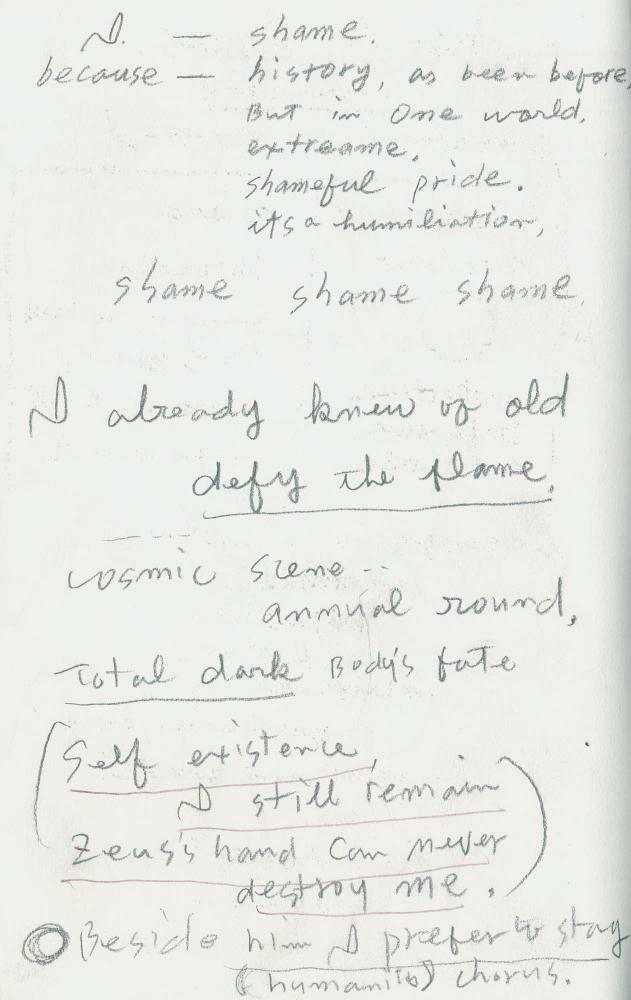 I. — shame.
because — history, as been before,
But in One world.
extreame.
shameful pride.
its a humiliation,
shame shame shame.
I already knew of old
defy the flame.
cosmic scene --
annual round,
Total dark Body's fate
(Self existence,
I still remain
Zeus's hand Can never
destroy me.)
Beside him I prefer to stay
chorus.